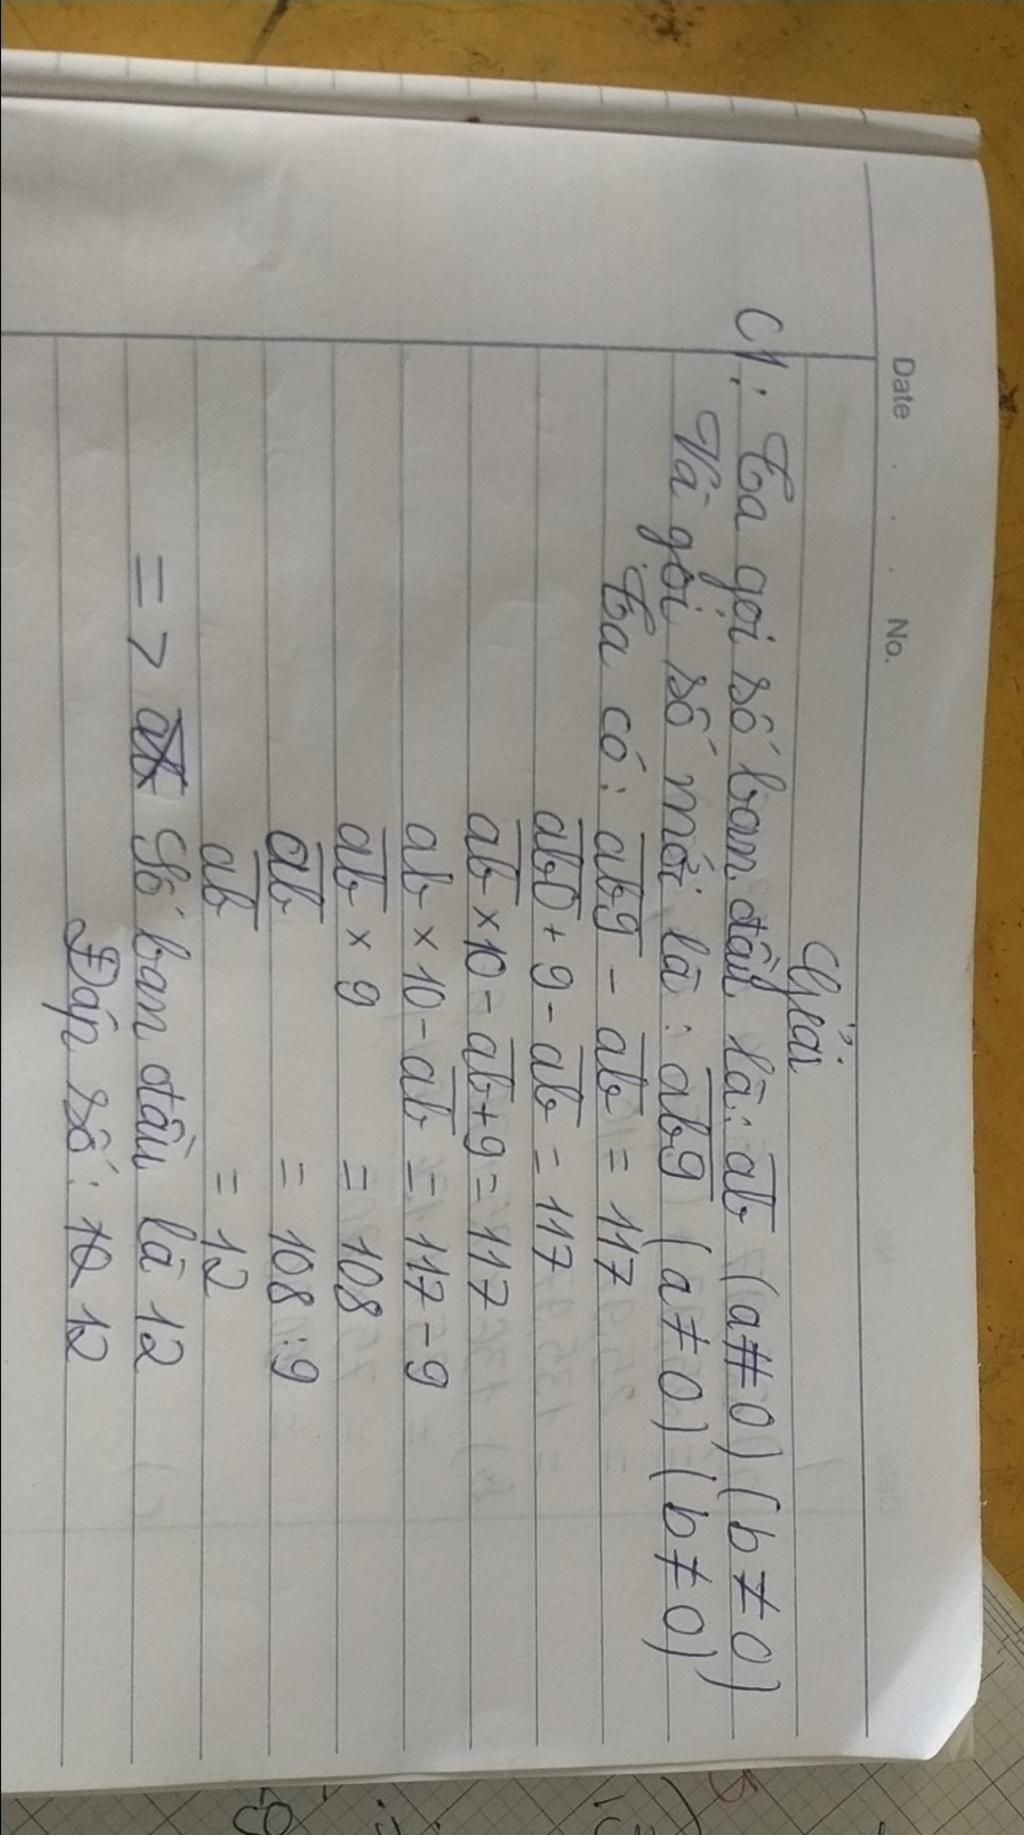 Date . . . No.
Giải
C1: Ta gọi số ban đầu là: ab (a ≠ 0) (b ≠ 0)
Và gọi số mới là: ab9 (a ≠ 0) (b ≠ 0)
Ta có: ab9 - ab = 117
ab0 + 9 - ab = 117
ab × 10 - ab + 9 = 117
ab × 10 - ab = 117 - 9
ab × 9 = 108
ab = 108 : 9
ab = 12
=> Số ban đầu là 12
Đáp số: 12